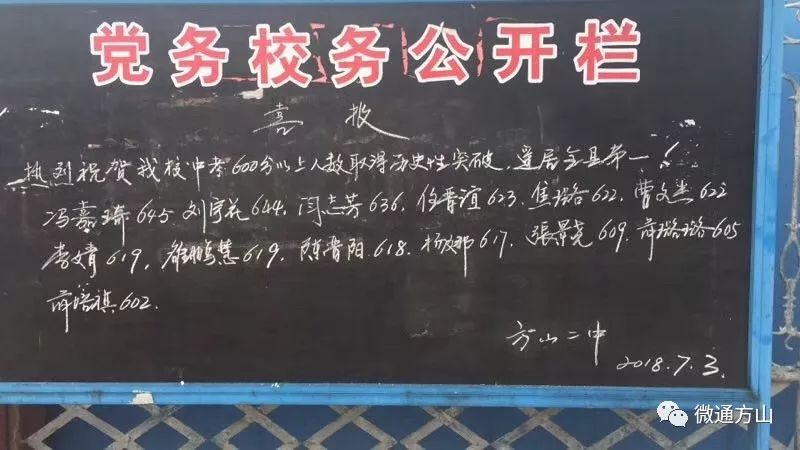 党务校务公开栏
喜报
热烈祝贺我校中考600分以上人数取得历史性突破,遥居全县第一!
冯嘉琦645 刘宇花644, 闫志芳636, 任晋谊623, 焦璐622, 曹文杰622
李婧619, 薛鹏慧619, 陈晋阳618, 杨娜617, 張景尧609, 薛璐璐605
薛培祺602.
方山二中
2018.7.3.
微通方山